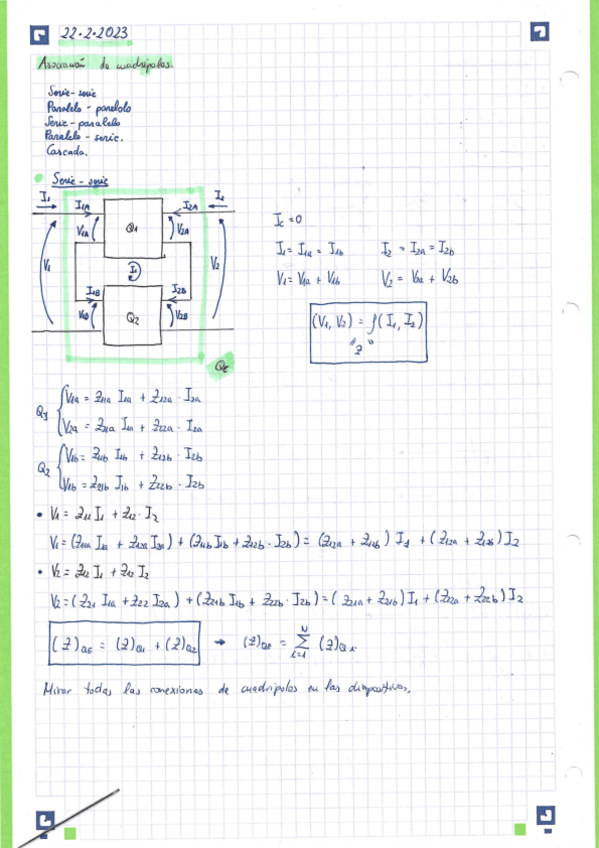 22·2·2023
Asociación de cuadripolos.
Serie-serie
Paralelo-paralelo
Serie-paralelo
Paralelo-serie.
Cascada.
Serie-serie
I1 I1A I2A I2
V1A Q1 V2A
V1 I1 V2
I1B I2B
V1B Q2 V2B
Qe
Ic = 0
I1 = I1a = I1b I2 = I2a = I2b
V1 = V1a + V1b V2 = V2a + V2b
(V1, V2) = f(I1, I2)
"z"
Q1 { V1a = z11a I1a + z12a · I2a
V2a = z21a I1a + z22a · I2a
Q2 { V1b = z11b I1b + z12b · I2b
V1b = z21b I1b + z22b · I2b
• V1 = z11 I1 + z12 · I2
V1 = (z11a I1a + z12a I2a) + (z11b I1b + z12b · I2b) = (z12a + z11b) I1 + (z12a + z12b) I2
• V2 = z12 I1 + z12 I2
V2 = (z21 I1a + z22 I2a) + (z21b I1b + z22b · I2b) = (z21a + z21b) I1 + (z22a + z22b) I2
(z)QE = (z)Q1 + (z)Q2 → (z)QE = N Σ i=1 (z)Q
Mirar todas las conexiones de cuadripolos en las diapositivas.